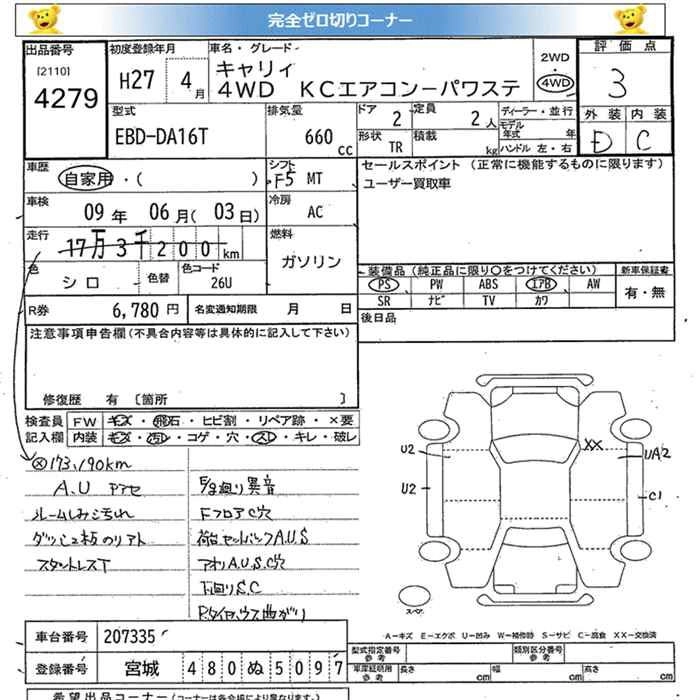 完全ゼロ切りコーナー
出品番号
[2110]
4279
初度登録年月
H27 4月
車名・グレード
キャリィ
4WD KCエアコンーパワステ
2WD
・
4WD
評価点
3
外装 内装
D C
型式
EBD-DA16T
排気量
660 cc
ドア 2
定員 2人
形状 TR
積載 kg
ディーラー・並行
モデル年式 年
ハンドル 左・右
車歴
自家用・( )
シフト
F5 MT
セールスポイント (正常に機能するものに限ります)
ユーザー買取車
車検
09年 06月(03日)
冷房
AC
走行
17万3千200km
燃料
ガソリン
色
シロ
色替
色コード
26U
装備品(純正品に限り○をつけてください)
新車保証書
PS PW ABS エアB AW
有・無
SR ナビ TV カワ
R券 6,780円
名変通知期限 月 日
後日品
注意事項申告欄(不具合内容等は具体的に記入して下さい)
修復歴 有 〔箇所 〕
検査員記入欄
FW キズ・飛石・ヒビ割・リペア跡・×要
内装 キズ・汚れ・コゲ・穴・スレ・キレ・破レ
173,190km
A.U
ルームしみ汚れ
異音
Fフロア C穴
A.U.S
アオリA.U.S.C穴
下回りS.C
曲がり
XX
U2
UA2
U2
C1
スペア
A－キズ E－エクボ U－凹み W－補修跡 S－サビ C－腐食 XX－交換済
車台番号 207335
型式指定番号 参考
類別区分番号 参考
登録番号 宮城 480 ぬ 5097
車庫証明用 参考
長さ cm 幅 cm 高さ cm
希望出品コーナー(コーナーは各会場により異なります。)